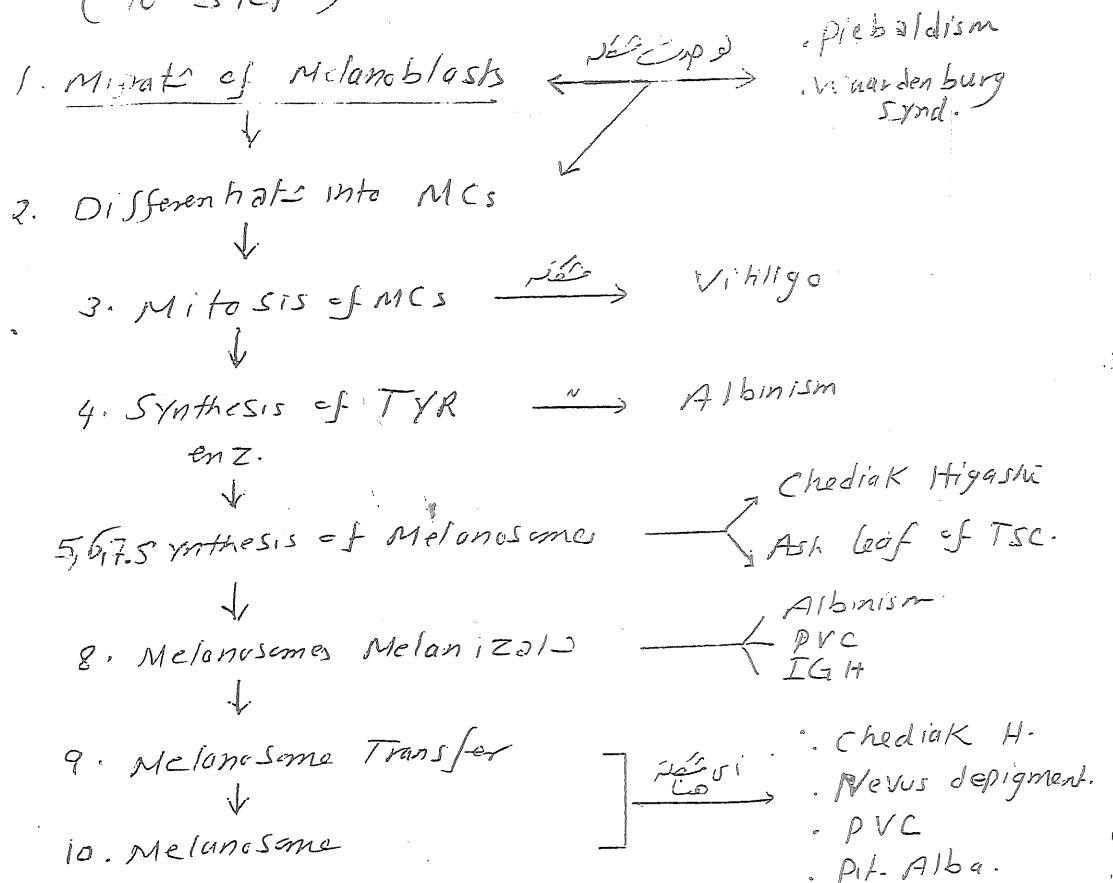 ( 10 steps )
1. Migratn of Melanoblasts لو حدث مشكلة . Piebaldism
. Waardenburg
Synd.
2. Differentiatn into MCs
3. Mitosis of MCs مشكلة Vitiligo
4. Synthesis of TYR " Albinism
enz.
5,6,7. Synthesis of Melanosomes Chediak Higashi
Ash leaf of TSC.
8. Melanosomes Melanizatn Albinism
PVC
IGH
9. Melanosome Transfer . Chediak H.
اى مشكلة
هنا
. Nevus depigment.
. PVC
10. Melanosome . Pit. Alba.